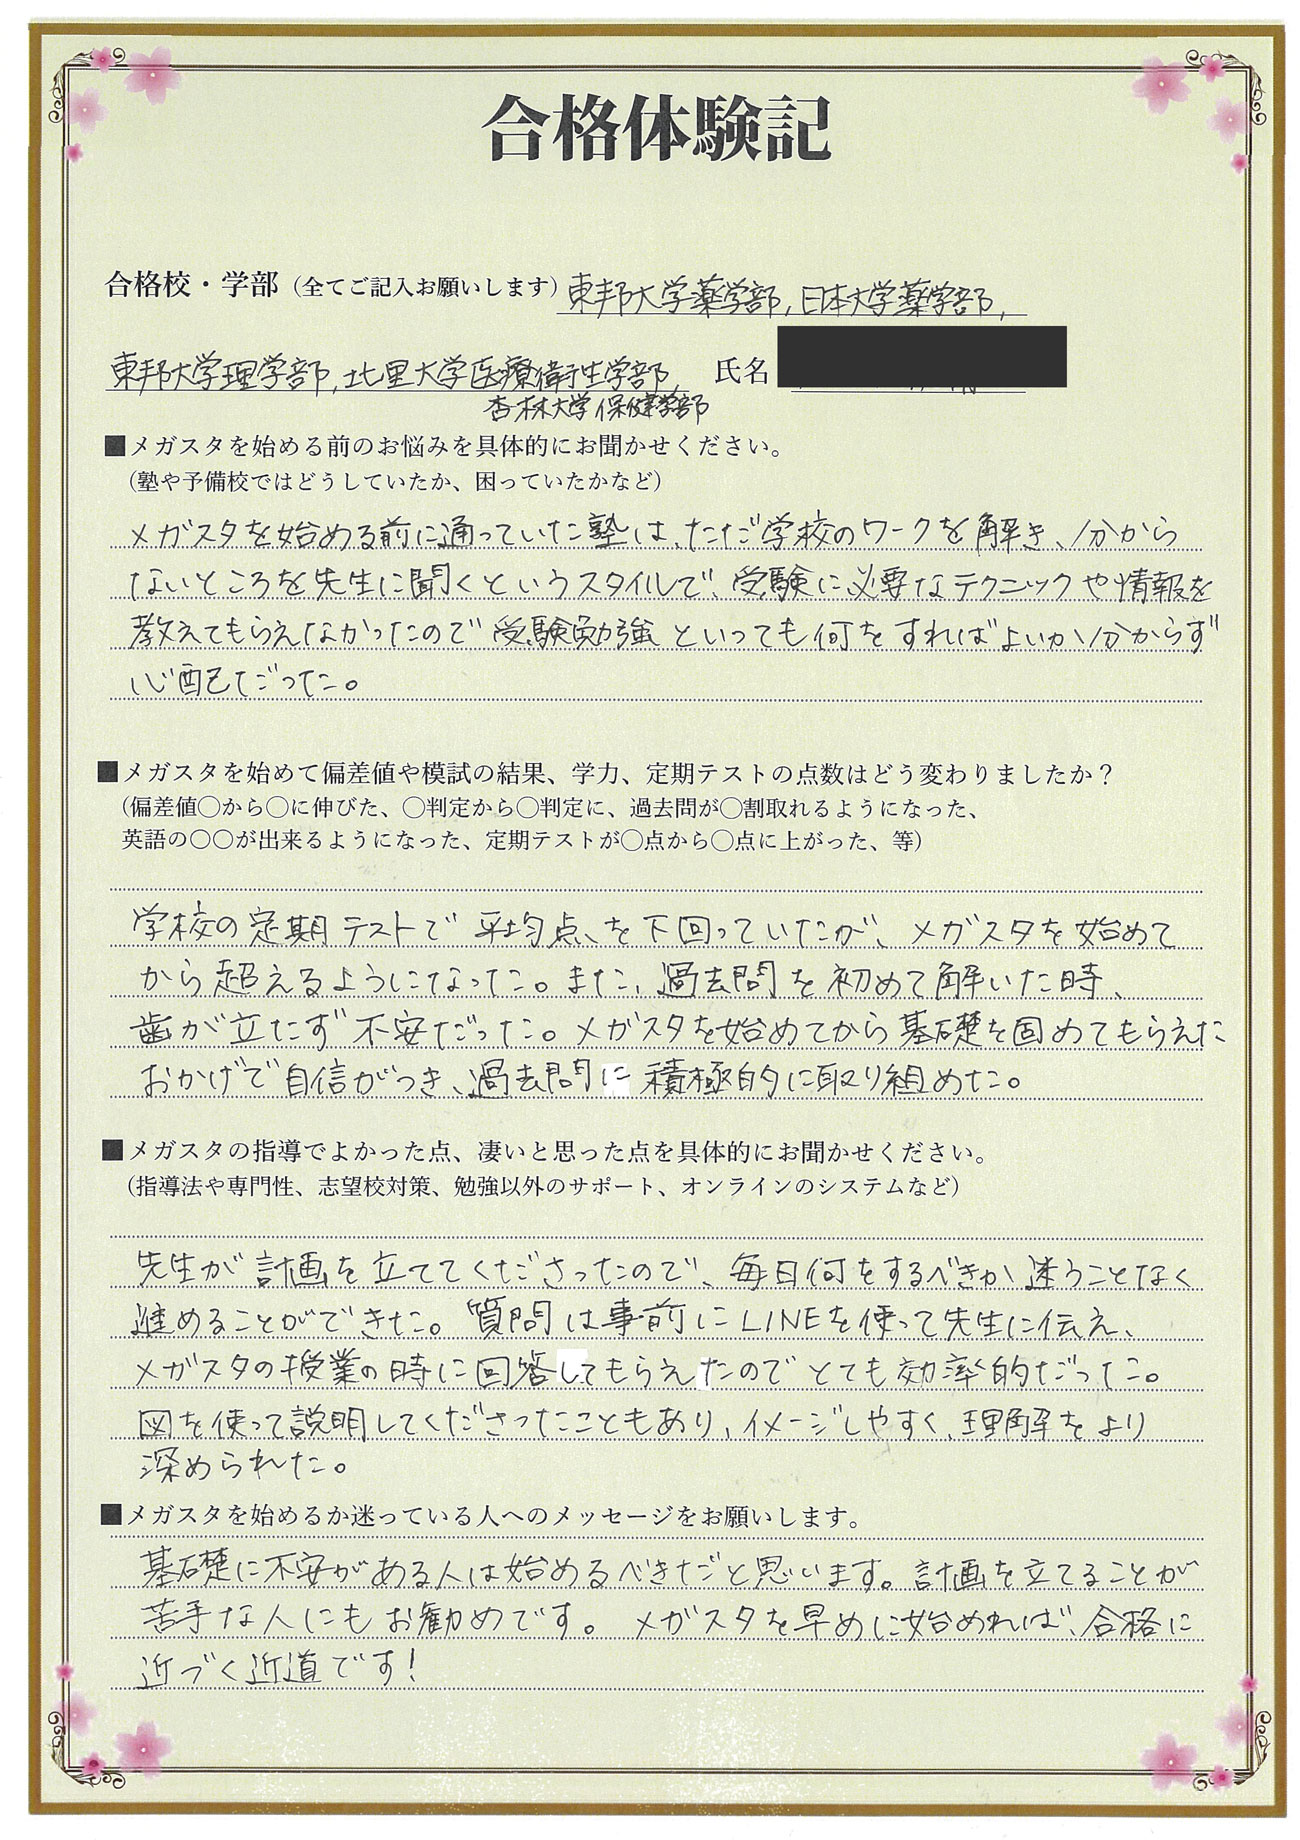 合格体験記
合格校・学部（全てご記入お願いします）東邦大学薬学部,日本大学薬学部,
東邦大学理学部,北里大学医療衛生学部, 氏名
杏林大学保健学部
■メガスタを始める前のお悩みを具体的にお聞かせください。
（塾や予備校ではどうしていたか、困っていたかなど）
メガスタを始める前に通っていた塾は、ただ学校のワークを解き、分から
ないところを先生に聞くというスタイルで、受験に必要なテクニックや情報を
教えてもらえなかったので受験勉強といっても何をすればよいか分からず
心配だった。
■メガスタを始めて偏差値や模試の結果、学力、定期テストの点数はどう変わりましたか？
（偏差値〇から〇に伸びた、〇判定から〇判定に、過去問が〇割取れるようになった、
英語の〇〇が出来るようになった、定期テストが〇点から〇点に上がった、等）
学校の定期テストで平均点を下回っていたが、メガスタを始めて
から超えるようになった。また、過去問を初めて解いた時、
歯が立たず不安だった。メガスタを始めてから基礎を固めてもらえた
おかげで自信がつき、過去問に積極的に取り組めた。
■メガスタの指導でよかった点、凄いと思った点を具体的にお聞かせください。
（指導法や専門性、志望校対策、勉強以外のサポート、オンラインのシステムなど）
先生が計画を立ててくださったので、毎日何をするべきか迷うことなく
進めることができた。質問は事前にLINEを使って先生に伝え、
メガスタの授業の時に回答してもらえたのでとても効率的だった。
図を使って説明してくださったこともあり、イメージしやすく、理解をより
深められた。
■メガスタを始めるか迷っている人へのメッセージをお願いします。
基礎に不安がある人は始めるべきだと思います。計画を立てることが
苦手な人にもお勧めです。メガスタを早めに始めれば、合格に
近づく近道です！